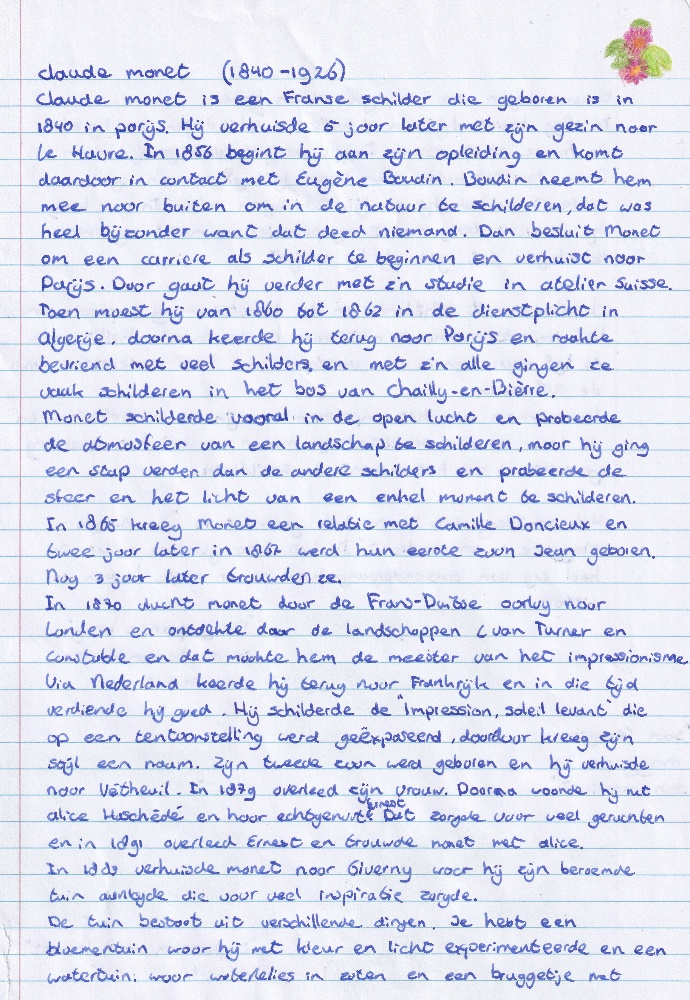 claude monet (1840-1926)
Claude monet is een Franse schilder die geboren is in
1840 in parijs. Hij verhuisde 5 jaar later met zijn gezin naar
le Havre. In 1856 begint hij aan zijn opleiding en komt
daardoor in contact met Eugène Boudin. Boudin neemt hem
mee naar buiten om in de natuur te schilderen, dat was
heel bijzonder want dat deed niemand. Dan besluit Monet
om een carriere als schilder te beginnen en verhuist naar
Parijs. Daar gaat hij verder met z'n studie in atelier Suisse.
Toen moest hij van 1860 tot 1862 in de dienstplicht in
Algerije. daarna keerde hij terug naar Parijs en raakte
bevriend met veel schilders, en met z'n alle gingen ze
vaak schilderen in het bos van Chailly-en-Bièrre.
Monet schilderde vooral in de open lucht en probeerde
de atmosfeer van een landschap te schilderen, maar hij ging
een stap verder dan de andere schilders en probeerde de
sfeer en het licht van een enkel moment te schilderen.
In 1865 kreeg Monet een relatie met Camille Doncieux en
twee jaar later in 1867 werd hun eerste zoon Jean geboren.
Nog 3 jaar later trouwden ze.
In 1870 vlucht monet door de Frans-Duitse oorlog naar
Londen en ontdekte daar de landschappen van Turner en
Constable en dat maakte hem de meester van het impressionisme
Via Nederland keerde hij terug naar Frankrijk en in die tijd
verdiende hij goed. Hij schilderde de "Impression, soleil levant" die
op een tentoonstelling werd geëxposeerd, daardoor kreeg zijn
stijl een naam. Zijn tweede zoon werd geboren en hij verhuisde
naar Vétheuil. In 1879 overleed zijn vrouw. Daarna woonde hij met
alice Hoschédé en haar echtgenoot Ernest. Dat zorgde voor veel geruchten
en in 1891 overleed Ernest en trouwde monet met alice.
In 1883 verhuisde monet naar Giverny waar hij zijn beroemde
tuin aanlegde die voor veel inspiratie zorgde.
De tuin bestaat uit verschillende dingen. Je hebt een
bloementuin waar hij met kleur en licht experimenteerde en een
watertuin. waar waterlelies in zaten en een bruggetje met